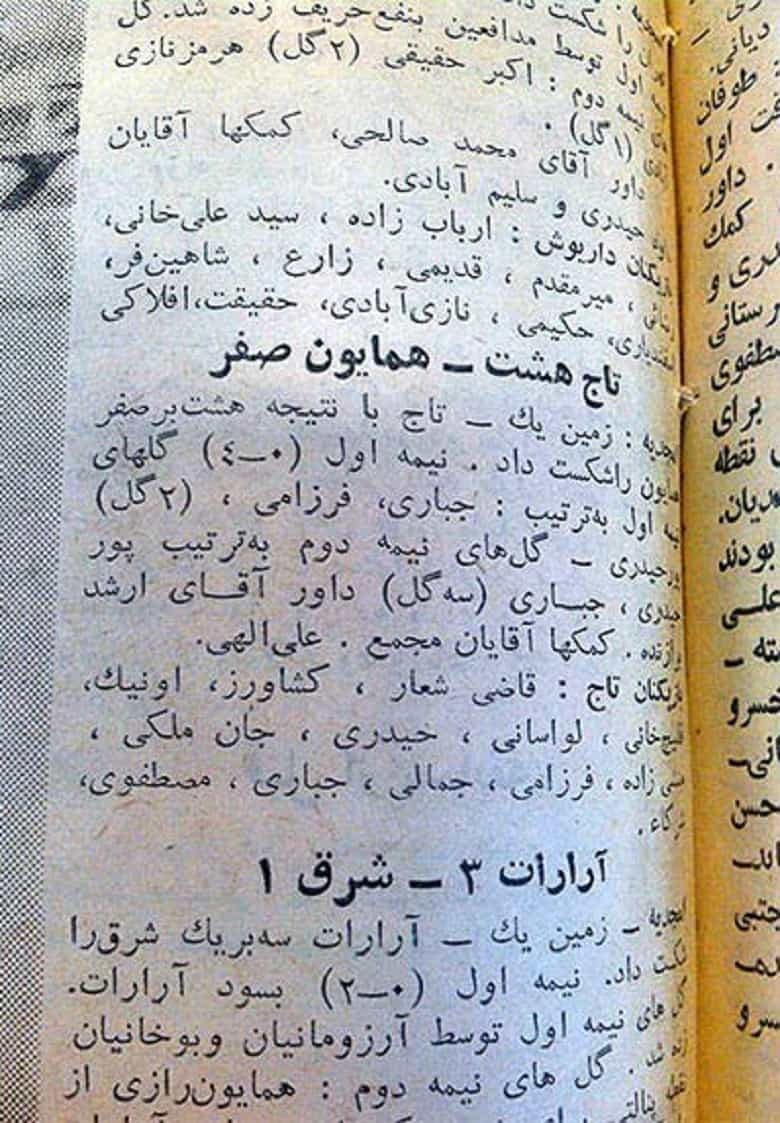 را شکست
اول توسط مدافعین بنفع‌حریف زده شد. گل
نیمه دوم : اکبر حقیقی (۲گل) هرمزنازی
(۱گل) .
داور آقای محمد صالحی، کمکها آقایان
حیدری و سلیم آبادی.
بازیکنان داریوش : ارباب زاده ، سید علی‌خانی،
میرمقدم ، قدیمی ، زارع ، شاهین‌فر،
حکیمی ، نازی‌آبادی، حقیقت،افلاکی
تاج هشت ـ همایون صفر
امجدیه : زمین یك ـ تاج با نتیجه هشت‌برصفر
همایون راشکست داد . نیمه اول (۰ـ٤) گلهای
نیمه اول به‌ترتیب : جباری، فرزامی ، (۲گل)
پورحیدری ـ گل‌های نیمه دوم به‌ترتیب پور
حیدری ، جباری (سه‌گل) داور آقای ارشد
برازنده . کمکها آقایان مجمع . علی‌الهی.
بازیکنان تاج : قاضی شعار ، کشاورز، اونیك،
لواسانی ، حیدری ، جان ملکی ،
زاده ، فرزامی ، جمالی ، جباری ، مصطفوی،
آرارات ۳ ـ شرق ۱
امجدیه ـ زمین یك ـ آرارات سه‌بریك شرق‌را
شکست داد. نیمه اول (۰ـ۲) بسود آرارات.
گل های نیمه اول توسط آرزومانیان وبوخانیان
زده شد . گل های نیمه دوم : همایون‌رازی از
نقطه پنالتی
دیانی.
طوفان
اول
داور
کمك
دری و
رستانی
مصطفوی
برای
نقطه
دیان.
بودند
علی
خسرو